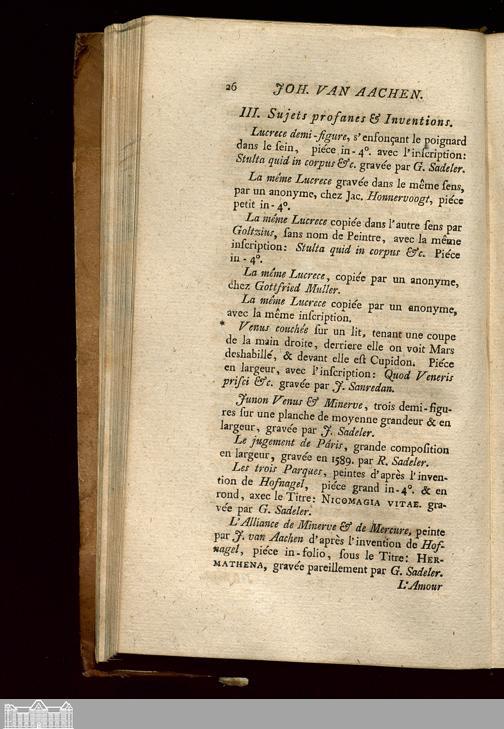 26 JOH. VAN AACHEN.
III. Sujets profanes & Inventions.
Lucrece demi-figure, s'enfonçant le poignard
dans le ſein, piéce in-4°. avec l'inſcription:
Stulta quid in corpus &c. gravée par G. Sadeler.
La même Lucrece gravée dans le même ſens,
par un anonyme, chez Jac. Honnervoogt, piéce
petit in-4°.
La même Lucrece copiée dans l'autre ſens par
Goltzius, ſans nom de Peintre, avec la même
inſcription: Stulta quid in corpus &c. Piéce
in-4°.
La même Lucrece, copiée par un anonyme,
chez Gottfried Muller.
La même Lucrece copiée par un anonyme,
avec la même inſcription.
* Venus couchée ſur un lit, tenant une coupe
de la main droite, derriere elle on voit Mars
deshabillé, & devant elle eſt Cupidon. Piéce
en largeur, avec l'inſcription: Quod Veneris
priſci &c. gravée par J. Sanredan.
Junon Venus & Minerve, trois demi-figu-
res ſur une planche de moyenne grandeur & en
largeur, gravée par J. Sadeler.
Le jugement de Pâris, grande compoſition
en largeur, gravée en 1589. par R. Sadeler.
Les trois Parques, peintes d'après l'inven-
tion de Hofnagel, piéce grand in-4°. & en
rond, axec le Titre: NICOMAGIA VITAE. gra-
vée par G. Sadeler.
L'Alliance de Minerve & de Mercure, peinte
par J. van Aachen d'après l'invention de Hof-
nagel, piéce in-folio, ſous le Titre: HER-
MATHENA, gravée pareillement par G. Sadeler.
L'Amour